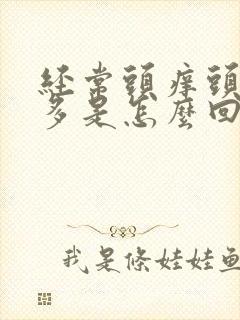 經常頭痒頭
多是怎麼回
我是條娃娃魚